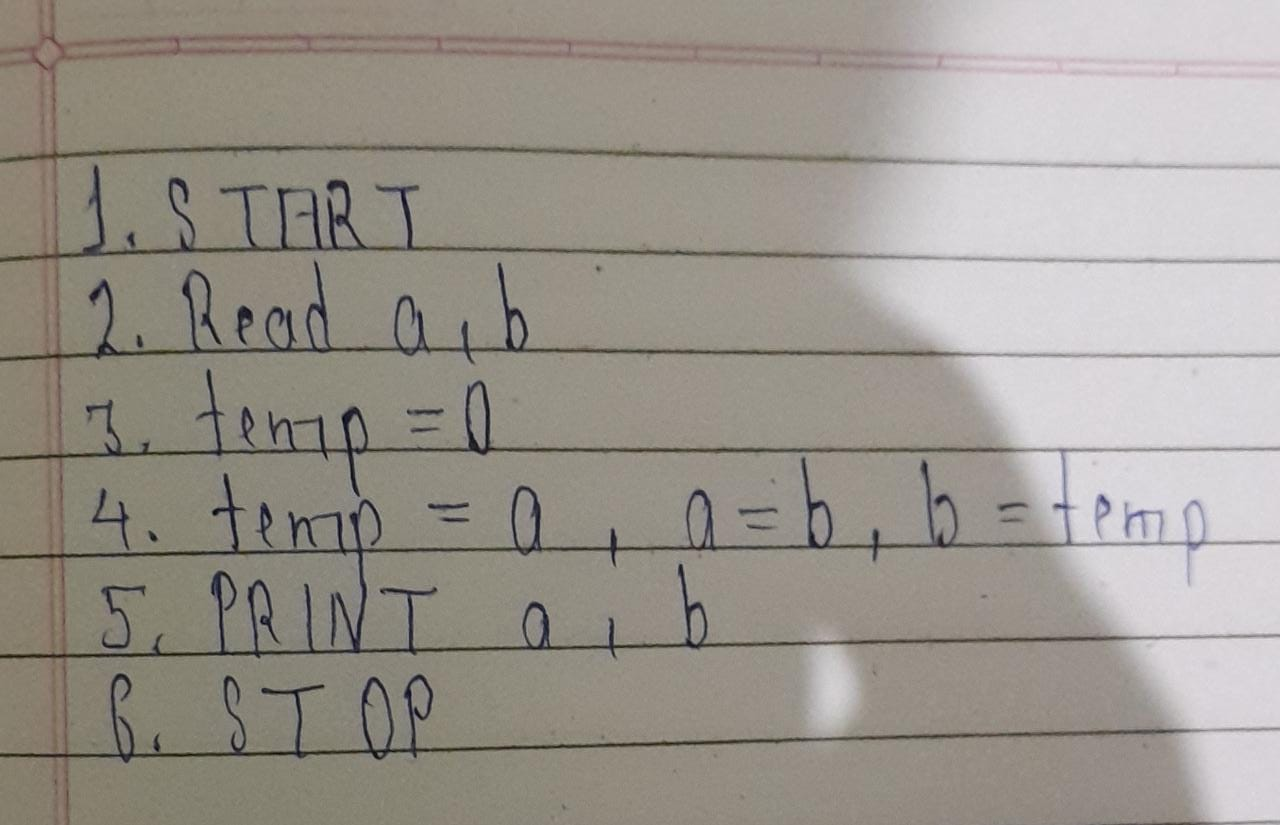 1. START
2. Read a, b
3. temp = 0
4. temp = a, a = b, b = temp
5. PRINT a, b
6. STOP